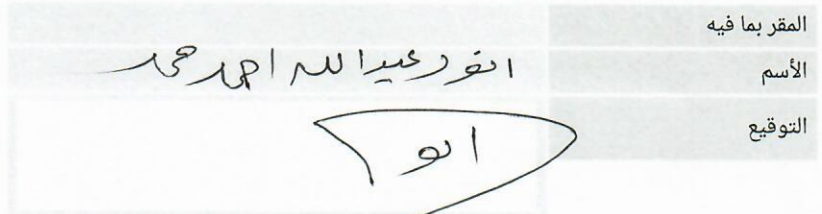 المقر بما فيه
الأسم انور عبدالله احمد محمد
التوقيع انو